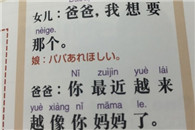 女儿：爸爸，我 想 要
nèige.
那个。
娘：パパあれほしい。
Nǐ zuìjìn yuè lái
爸爸：你 最近 越 来
yuè xiàng nǐ māma le.
越 像 你 妈妈 了。